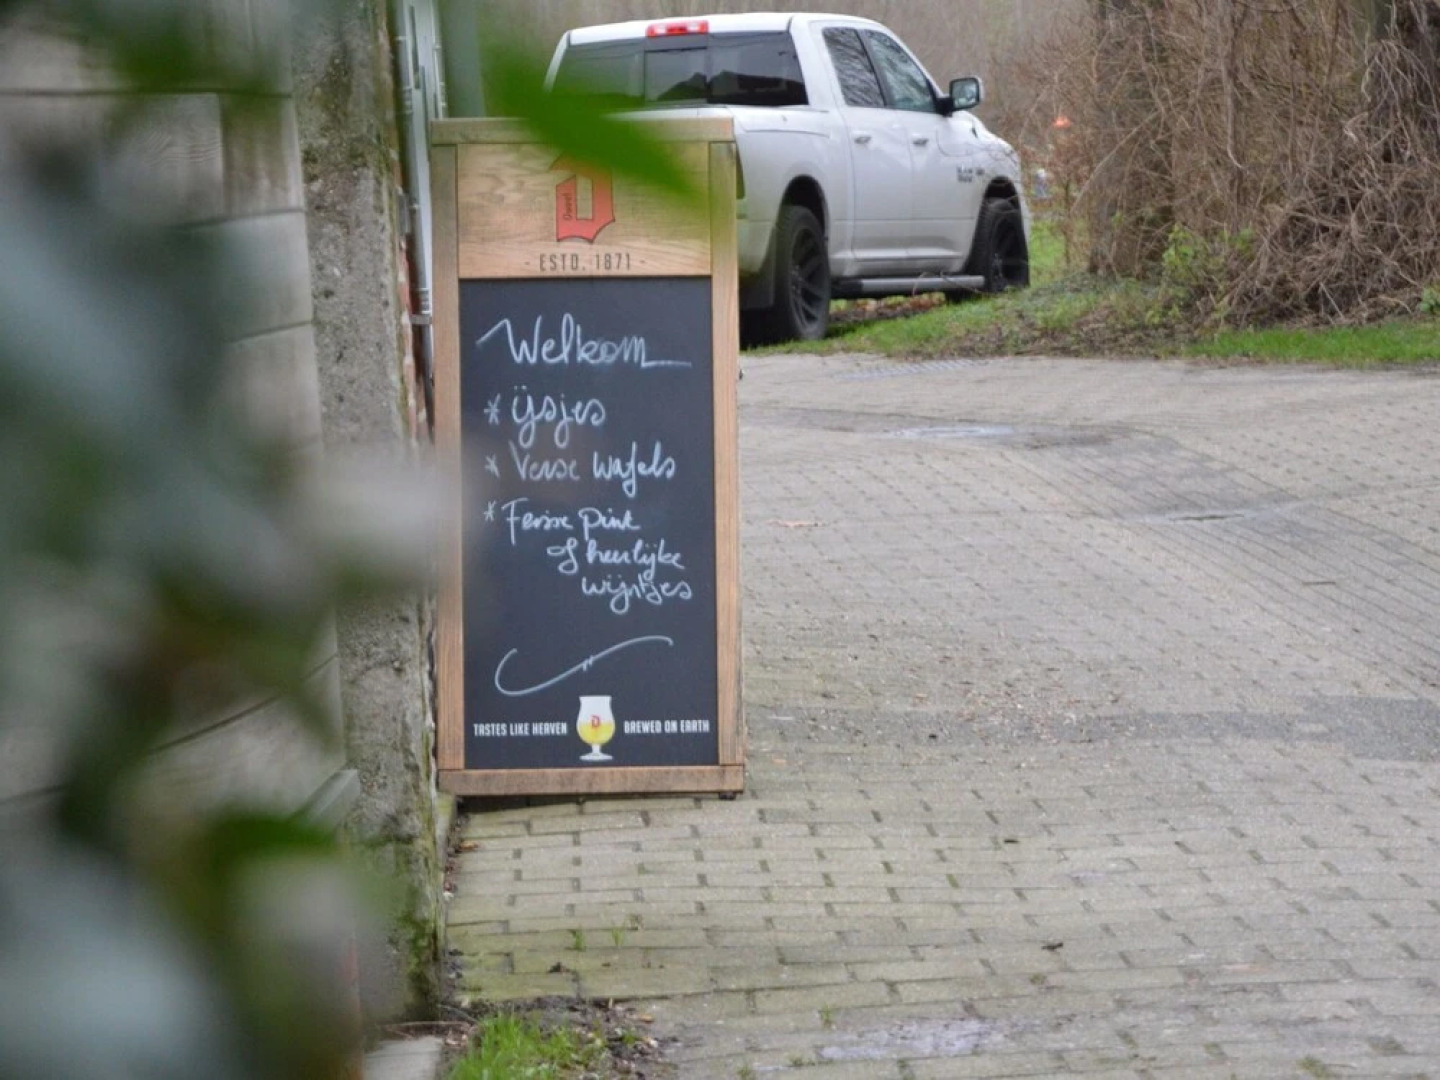 Duvel
- ESTD. 1871 -
Welkom
* ijsjes
* Verse wafels
* Frisse pint
of heerlijke
wijntjes
TASTES LIKE HEAVEN BREWED ON EARTH